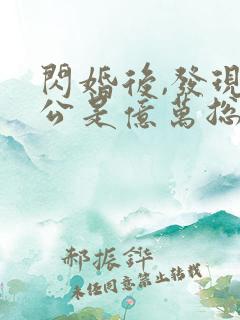 閃婚後,發現
公是億萬总
郝振鏵
未经同意禁止转载